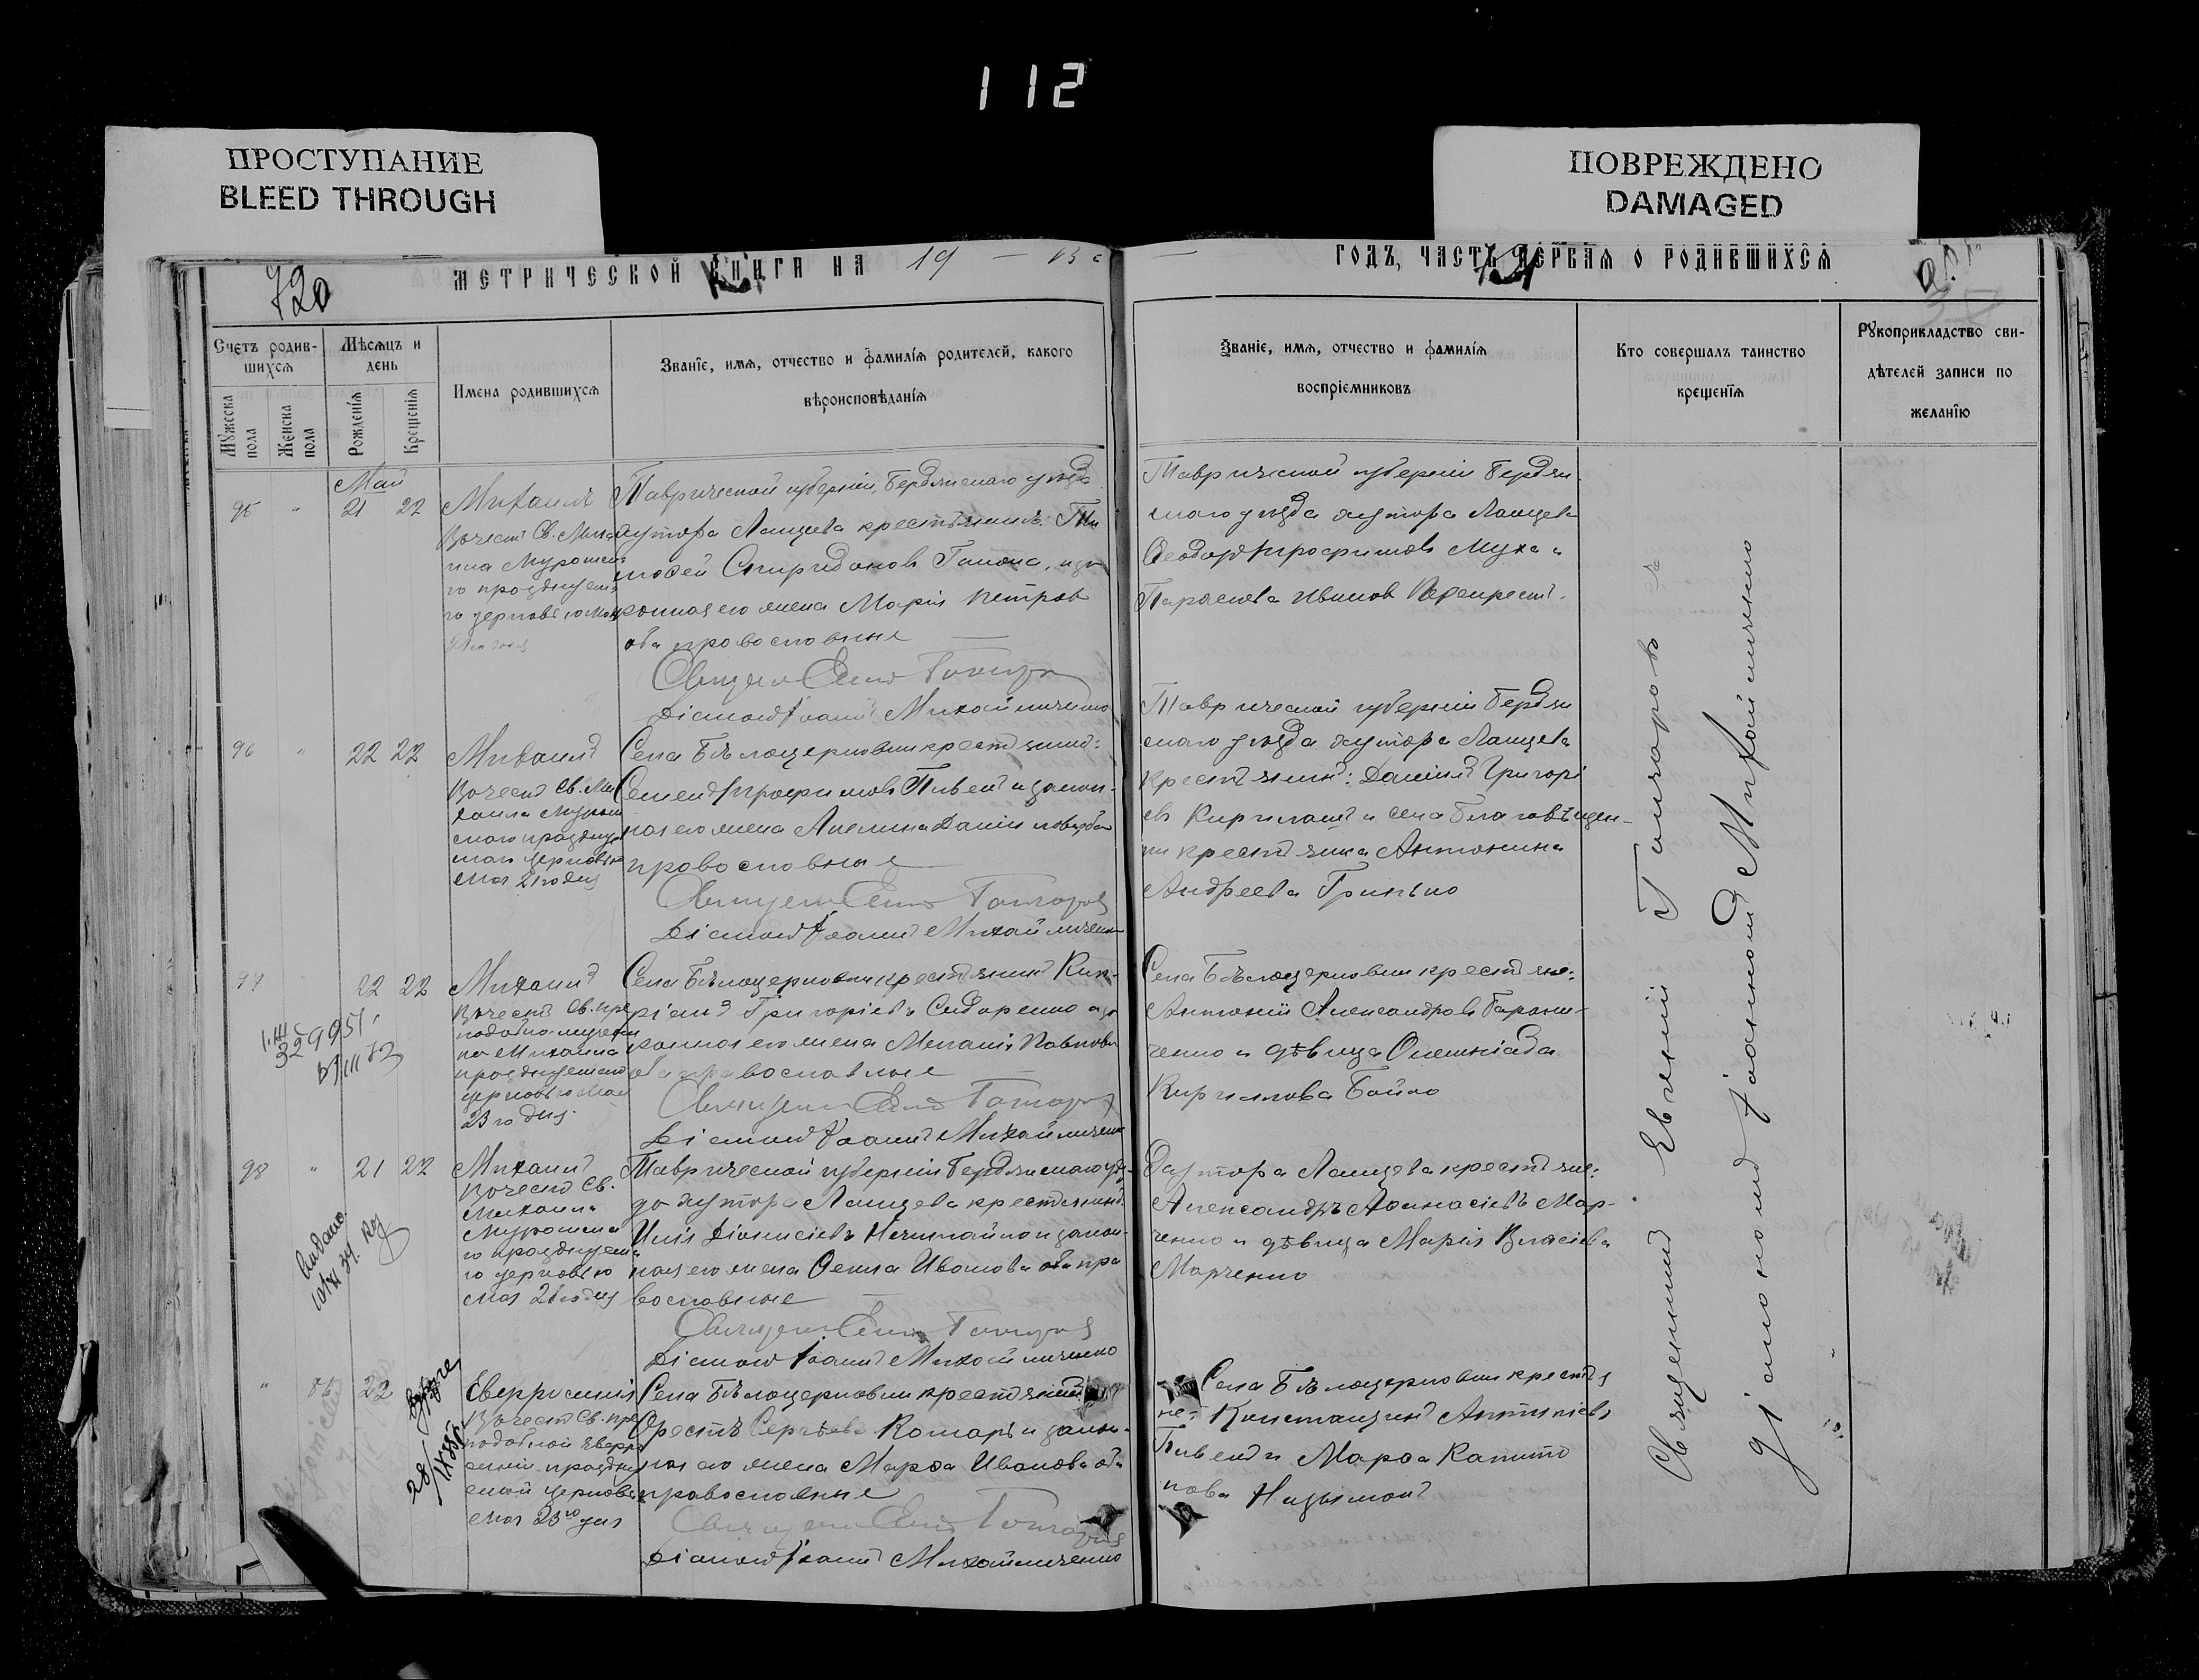 112
ПРОСТУПАНИЕ
BLEED THROUGH
ПОВРЕЖДЕНО
DAMAGED
МЕТРИЧЕСКОЙ КНИГИ НА 19
ГОДЪ, ЧАСТЬ ПЕРВАЯ О РОДИВШИХСЯ
Счетъ родив-
шихся
Мужеска
пола
Женска
пола
Мѣсяцъ и
день
Рожденія
Крещенія
Имена родившихся
Званіе, имя, отчество и фамилія родителей, какого
вѣроисповѣданія
Званіе, имя, отчество и фамилія
воспріемниковъ
Кто совершалъ таинство
крещенія
Рукоприкладство сви-
дѣтелей записи по
желанію
Май
95 " 21 22
Михаилъ
Въ честь Св. Миха
ила Муромска
го празднуема
го церковью Мая
Таврической губерніи, Бердянскаго уѣзда
хутора Ланцева крестьянинъ: Ти
мофей Спиридоновъ Гапона, и за
конная его жена Марія Петрова
оба православные
Священ Евгеній Гончаровъ
Діаконъ Іоаннъ Михайличенко
Таврической губерніи Бердян
скаго уѣзда хутора Ланцева
Феодоръ Трофимовъ Муха и
Параскева Иванова
96 " 22 22
Михаилъ
Въ честь Св. Ми
хаила Муром
скаго праздну
маго церковью
мая 21го дня
Села Бѣлоцерковки крестьянинъ:
Семенъ Трофимовъ Пивень и закон-
ная его жена Акелина Даніилова оба
православные
Священ Евгеній Гончаровъ
Діаконъ Іоаннъ Михайличенко
Таврической губерніи Бердян
скаго уѣзда хутора Ланцева
крестьянинъ: Даніилъ Григорі
евъ и села Благовѣщен-
ки крестьянка Антонина
Андреева Гринько
97 22 22
Михаилъ
Въ честь Св. пре
подобно-мучени
ка Михаила
празднуемаго
церковью Мая
23го дня.
Села Бѣлоцерковки крестьянинъ Кип-
ріанъ Григоріевъ Сидоренко и за
конная его жена Меланія Павлова
оба православные
Священ Евгеній Гончаровъ
Діаконъ Іоаннъ Михайличенко
Села Бѣлоцерковки крестьяне:
Антоній Александровъ Гарани-
ченко и дѣвица Олимпіада
Кирилова Бойко
98 " 21 22
Михаилъ
Въ честь Св.
Михаила
Муромска
го празднуема
го церковью
мая 21го дня
Таврической губерніи Бердянскаго уѣз-
да хутора Ланцева крестьянинъ:
Илія Діонисіевъ Нечипайло и закон-
ная его жена Ѳекла Иванова оба пра
вославные
Священ Евгеній Гончаровъ
Діаконъ Іоаннъ Михайличенко
Хутора Ланцева крестьяне:
Александръ Аѳанасіевъ Мар-
ченко и дѣвица Марія Власіева
Марченко
" 22
Евфросинія
Въ честь Св. пре
подобной Евфро
синіи праздну
емой церковью
мая 23го дня
Села Бѣлоцерковки крестьянинъ
Орестъ Сергѣевъ Комаръ и закон-
ная его жена Марѳа Иванова оба
православные
Священ Евгеній Гончаровъ
Діаконъ Іоаннъ Михайличенко
Села Бѣлоцерковки крестья
не: Константинъ Антипіевъ
Пивень и Марѳа Капито
нова
Священникъ Евгеній Гончаровъ съ
діакономъ Іоанномъ Михайличенко